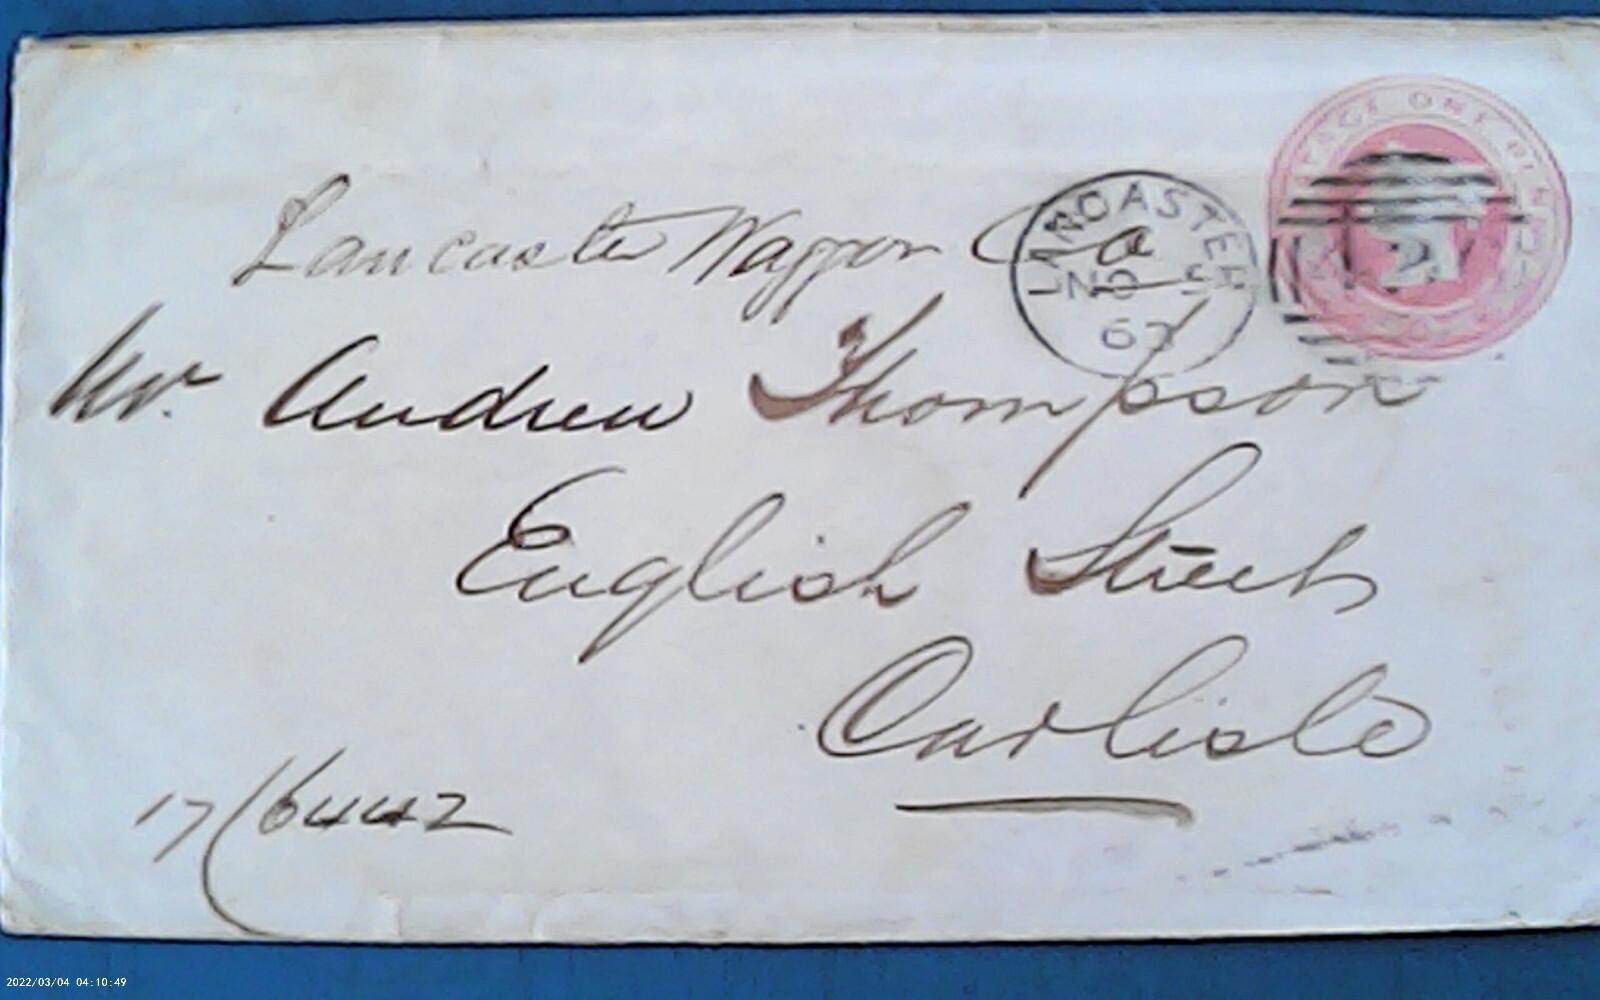 POSTAGE ONE PENNY
LANCASTER
NO 5
63
Lancaster Waggon Co
Mr. Andrew Thompson
English Street
Carlisle
17/6442
2022/03/04 04:10:49